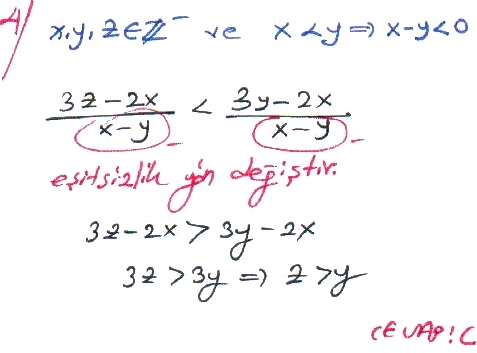 4) x, y, z ∈ ℤ⁻ ve x < y ⇒ x - y < 0
(3z - 2x)/(x - y) < (3y - 2x)/(x - y)
- -
eşitsizlik yön değiştir.
3z - 2x > 3y - 2x
3z > 3y ⇒ z > y
CEVAP: C